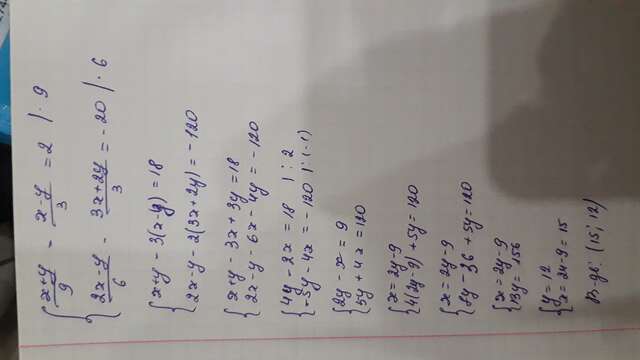 (x+y)/9 - (x-y)/3 = 2 | · 9
(2x-y)/6 - (3x+2y)/3 = -20 | · 6
x+y - 3(x-y) = 18
2x-y - 2(3x+2y) = -120
x+y - 3x + 3y = 18
2x-y - 6x - 4y = -120
4y - 2x = 18 | : 2
-5y - 4x = -120 | : (-1)
2y - x = 9
5y + 4x = 120
x = 2y - 9
4(2y-9) + 5y = 120
x = 2y - 9
8y - 36 + 5y = 120
x = 2y - 9
13y = 156
y = 12
x = 24 - 9 = 15
В-дь: (15; 12)